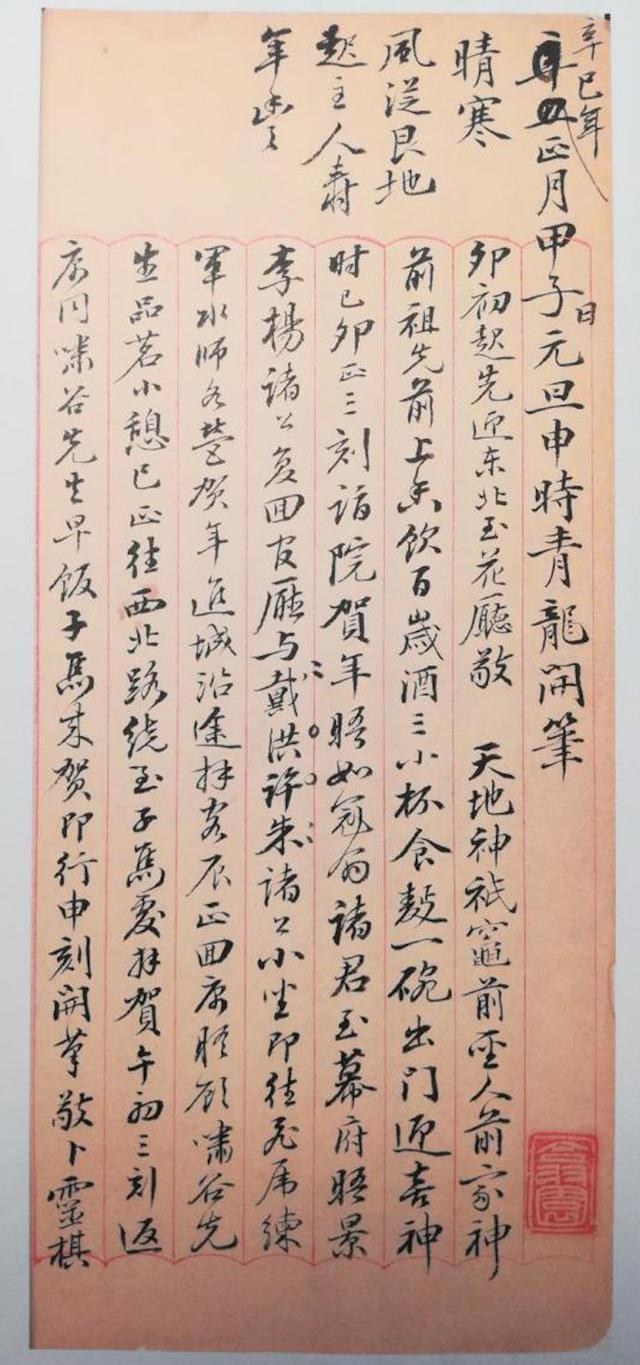 辛巳年
正月甲子日元旦申時青龍開筆
晴寒
風從艮地
起主人壽
年豐
卯初起先迎东北至花廳敬 天地神祇竈前聖人前家神
前祖先前上香飲百歲酒三小杯食麫一碗出門迎喜神
时已卯正三刻詣院賀年晤如冠翁諸君至幕府晤景
李楊諸公复回官廰与戴洪許朱諸公小坐即往飛虎練
軍水師各營贺年進城沿途拜客辰正回寓晤顧嘯谷先
生品茗小憩巳正往西北路绕至子雋處拜賀午初三刻返
寓同嘯谷先生早饭子雋来贺即行申刻開筆敬卜靈棋